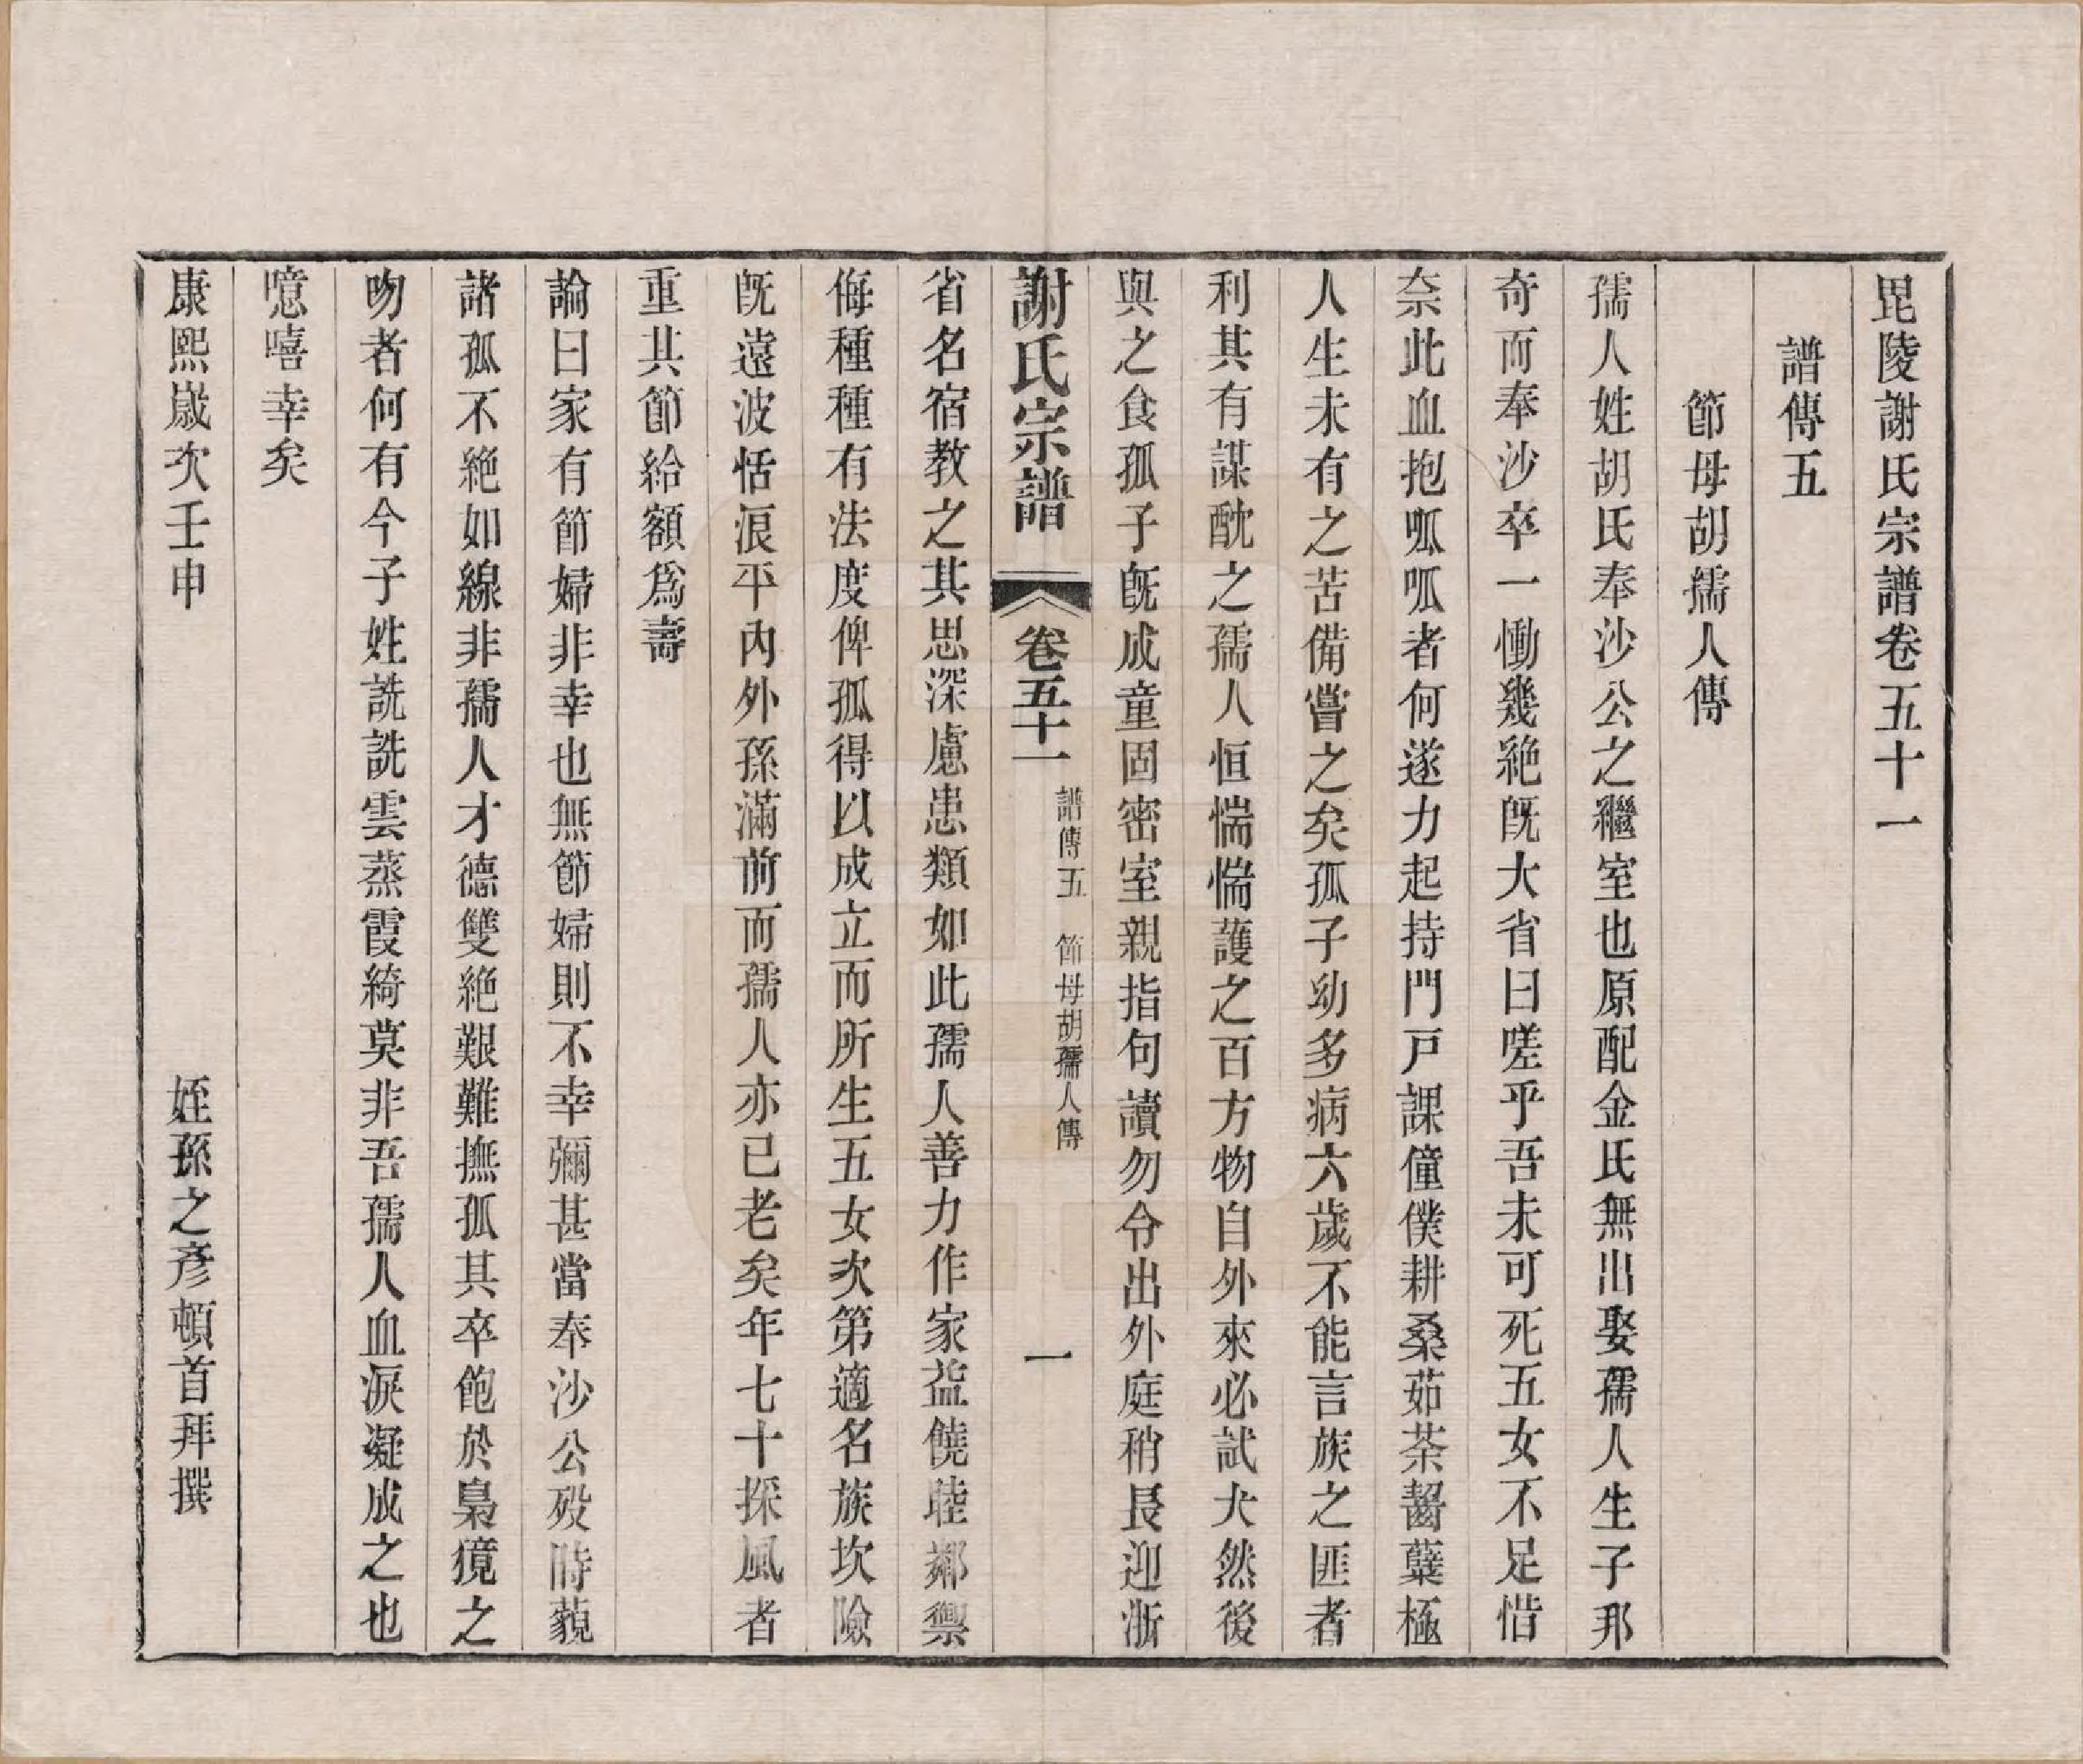 毘陵謝氏宗譜卷五十一
譜傳五
節母胡孺人傳
孺人姓胡氏奉沙公之繼室也原配金氏無出娶孺人生子邦
奇而奉沙卒一慟幾絶旣大省曰嗟乎吾未可死五女不足惜
奈此血抱呱呱者何遂力起持門戸課僮僕耕桑茹荼齧蘗極
人生未有之苦備嘗之矣孤子幼多病六歲不能言族之匪者
利其有謀酖之孺人恒惴惴護之百方物自外來必試犬然後
與之食孤子旣成童固密室親指句讀勿令出外庭稍長迎浙
謝氏宗譜 卷五十一 譜傳五 節母胡孺人傳 一
省名宿教之其思深慮患類如此孺人善力作家益饒睦鄰禦
侮種種有法度俾孤得以成立而所生五女次第適名族坎險
旣遠波恬浪平內外孫滿前而孺人亦已老矣年七十探風者
重其節給額爲壽
論曰家有節婦非幸也無節婦則不幸彌甚當奉沙公歿時藐
諸孤不絶如線非孺人才德雙絶艱難撫孤其卒飽於梟獍之
吻者何有今子姓詵詵雲蒸霞綺莫非吾孺人血淚凝成之也
噫嘻幸矣
康熙歲次壬申 姪孫之彥頓首拜撰